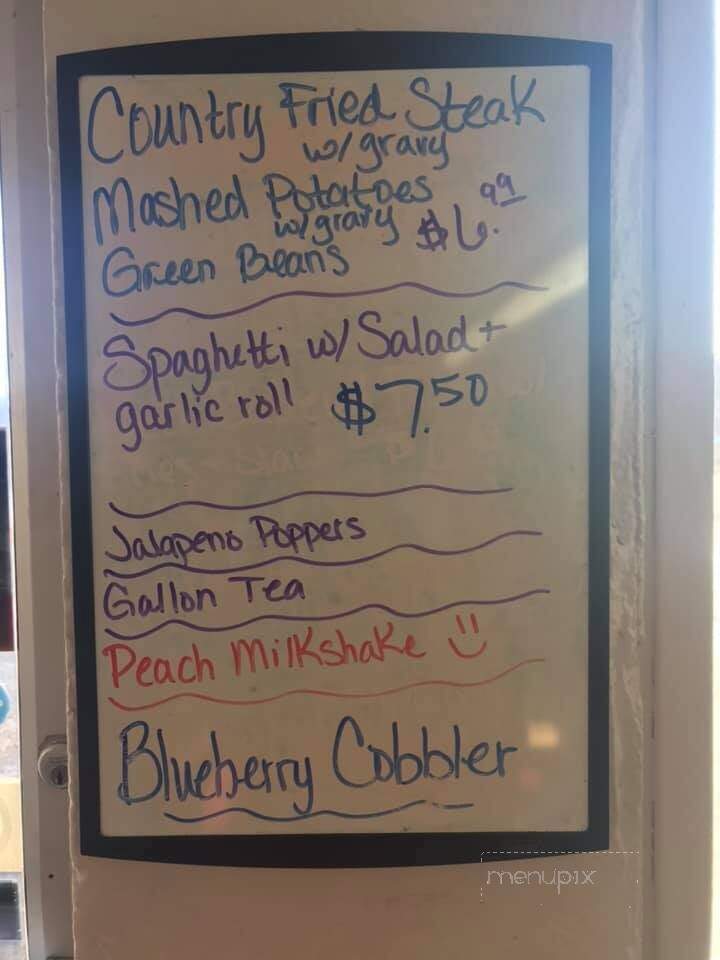 Country Fried Steak
w/ gravy
Mashed Potatoes
w/ gravy $6.99
Green Beans
Spaghetti w/ Salad +
garlic roll $7.50
Jalapeno Poppers
Gallon Tea
Peach Milkshake
Blueberry Cobbler
menupix